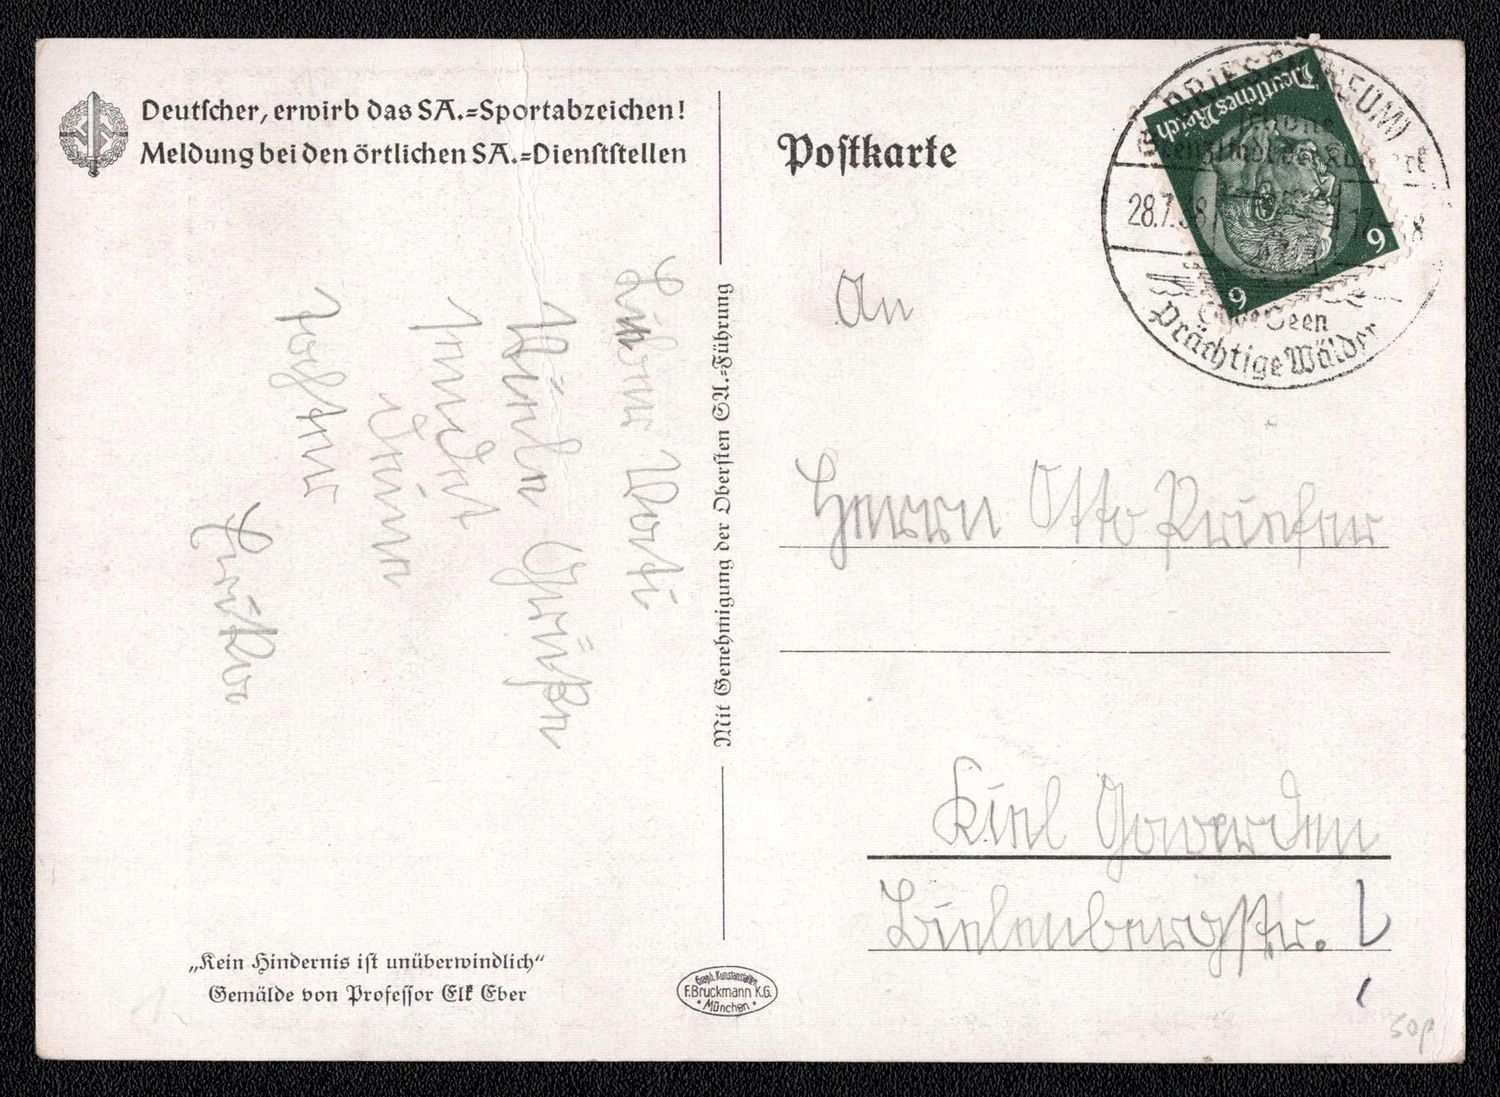 Deutscher, erwirb das SA.=Sportabzeichen!
Meldung bei den örtlichen SA.=Dienststellen
Postkarte
Deutsches Reich
6
6
28.7.38
Seen
Prächtige Wälder
Mit Genehmigung der Obersten SA.=Führung
Lieber Vati
Viele Grüße
sendet
Deine
Tochter
An
Herrn Otto
Kiel Gaarden
Bielenbergstr.
„Kein Hindernis ist unüberwindlich“
Gemälde von Professor Elk Eber
Graph. Kunstanstalten
F. Bruckmann K.G.
München
50p